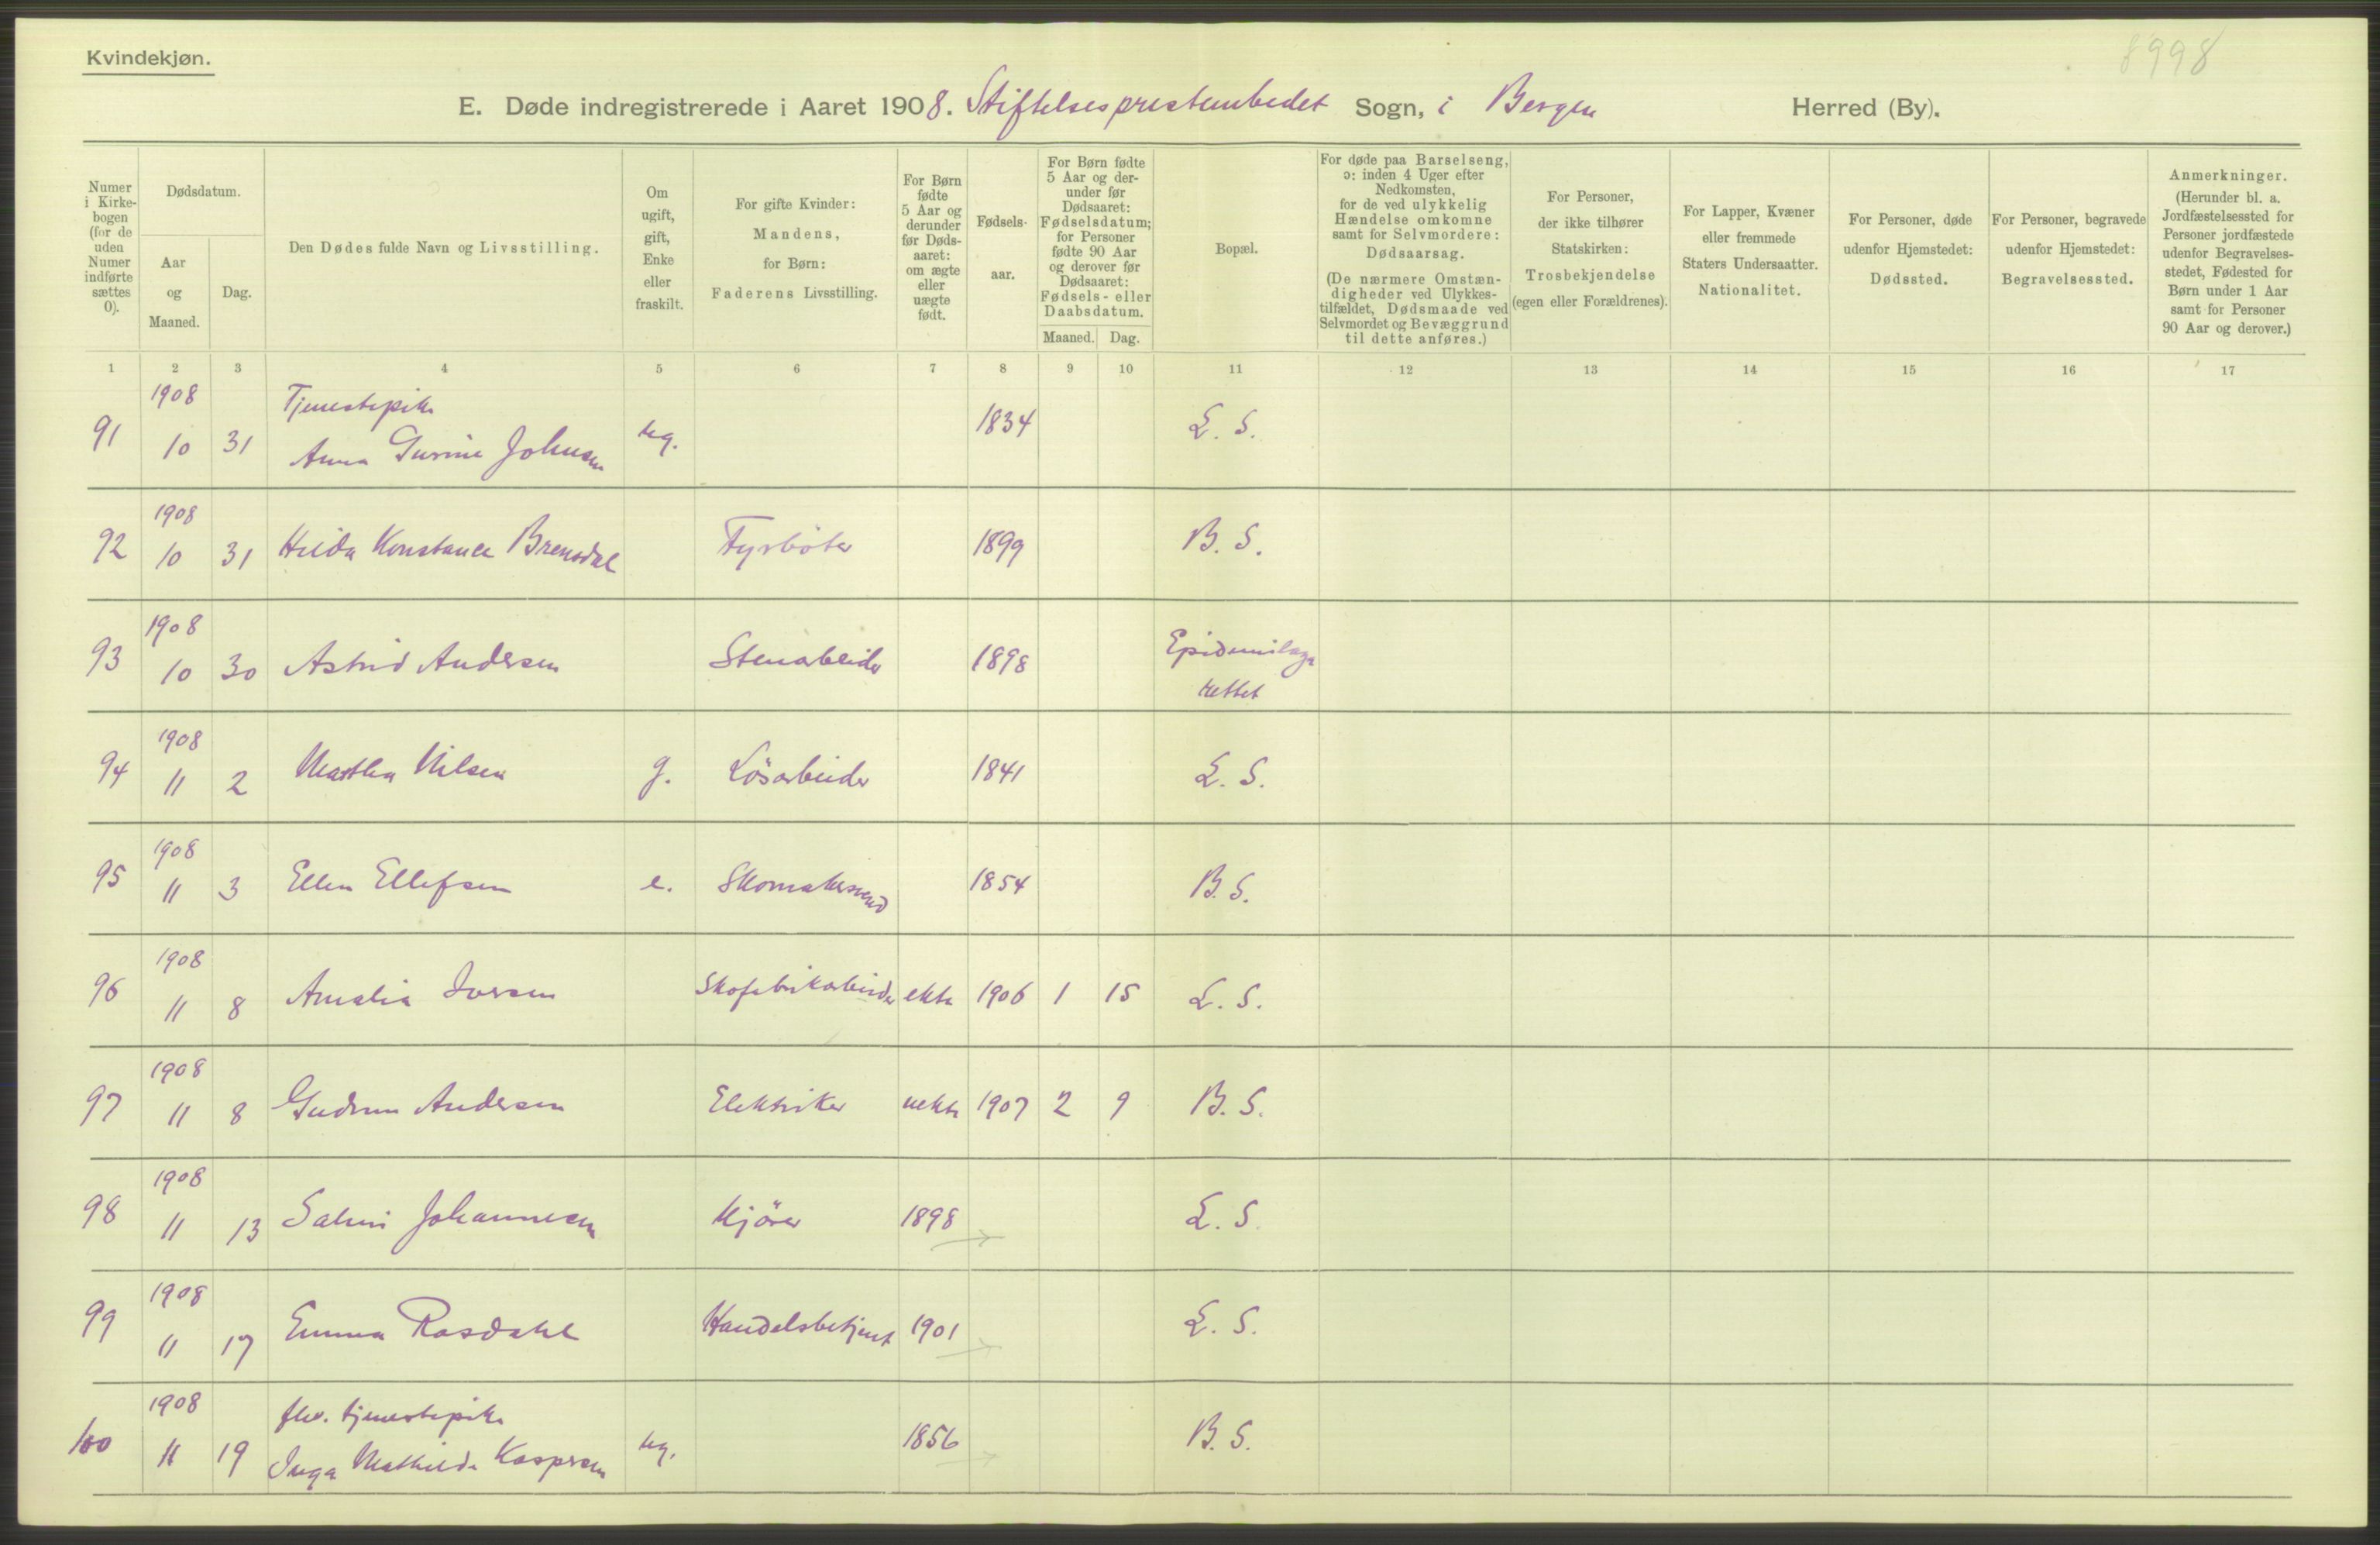 Kvindekjøn.
8998
E. Døde indregistrerede i Aaret 1908. Stiftelsesprestembedet Sogn, i Bergen Herred (By).
Numer i Kirkebogen (for de uden Numer indførte sættes 0).
Dødsdatum.
Aar og Maaned.
Dag.
Den Dødes fulde Navn og Livsstilling.
Om ugift, gift, Enke eller fraskilt.
For gifte Kvinder: Mandens, for Børn: Faderens Livsstilling.
For Børn fødte 5 Aar og derunder før Dødsaaret: om ægte eller uægte født.
Fødselsaar.
For Børn fødte 5 Aar og derunder før Dødsaaret: Fødselsdatum; for Personer fødte 90 Aar og derover før Dødsaaret: Fødsels- eller Daabsdatum.
Maaned. Dag.
Bopæl.
For døde paa Barselseng, ɔ: inden 4 Uger efter Nedkomsten, for de ved ulykkelig Hændelse omkomne samt for Selvmordere: Dødsaarsag. (De nærmere Omstændigheder ved Ulykkestilfældet, Dødsmaade ved Selvmordet og Bevæggrund til dette anføres.)
For Personer, der ikke tilhører Statskirken: Trosbekjendelse (egen eller Forældrenes).
For Lapper, Kvæner eller fremmede Staters Undersaatter. Nationalitet.
For Personer, døde udenfor Hjemstedet: Dødssted.
For Personer, begravede udenfor Hjemstedet: Begravelsessted.
Anmerkninger. (Herunder bl. a. Jordfæstelsessted for Personer jordfæstede udenfor Begravelsesstedet, Fødested for Børn under 1 Aar samt for Personer 90 Aar og derover.)
1 2 3 4 5 6 7 8 9 10 11 12 13 14 15 16 17
1908 Tjenestepike
91 10 31 Anna Gurine Johnsen ug. 1834 L. S.
1908
92 10 31 Hilda Konstance Brensdal Fyrböter 1899 B. S.
1908
93 10 30 Astrid Andersen Stenarbeider 1898 Epidemilaza
rettet
1908
94 11 2 Martha Nilsen g. Lösarbeider 1841 L. S.
1908
95 11 3 Ellen Ellefsen e. Skomakersvend 1854 B. S.
1908
96 11 8 Amalia Iversen Skofabrikarbeider ekte 1906 1 15 L. S.
1908
97 11 8 Gudrun Andersen Elektriker uekte 1907 2 9 B. S.
1908
98 11 13 Salmi Johannesen Kjörer 1898 L. S.
1908
99 11 17 Emma Rosdahl Handelsbetjent 1901 L. S.
1908 fhv. tjenestepike
100 11 19 Inga Mathilde Kaspersen ug. 1856 B. S.